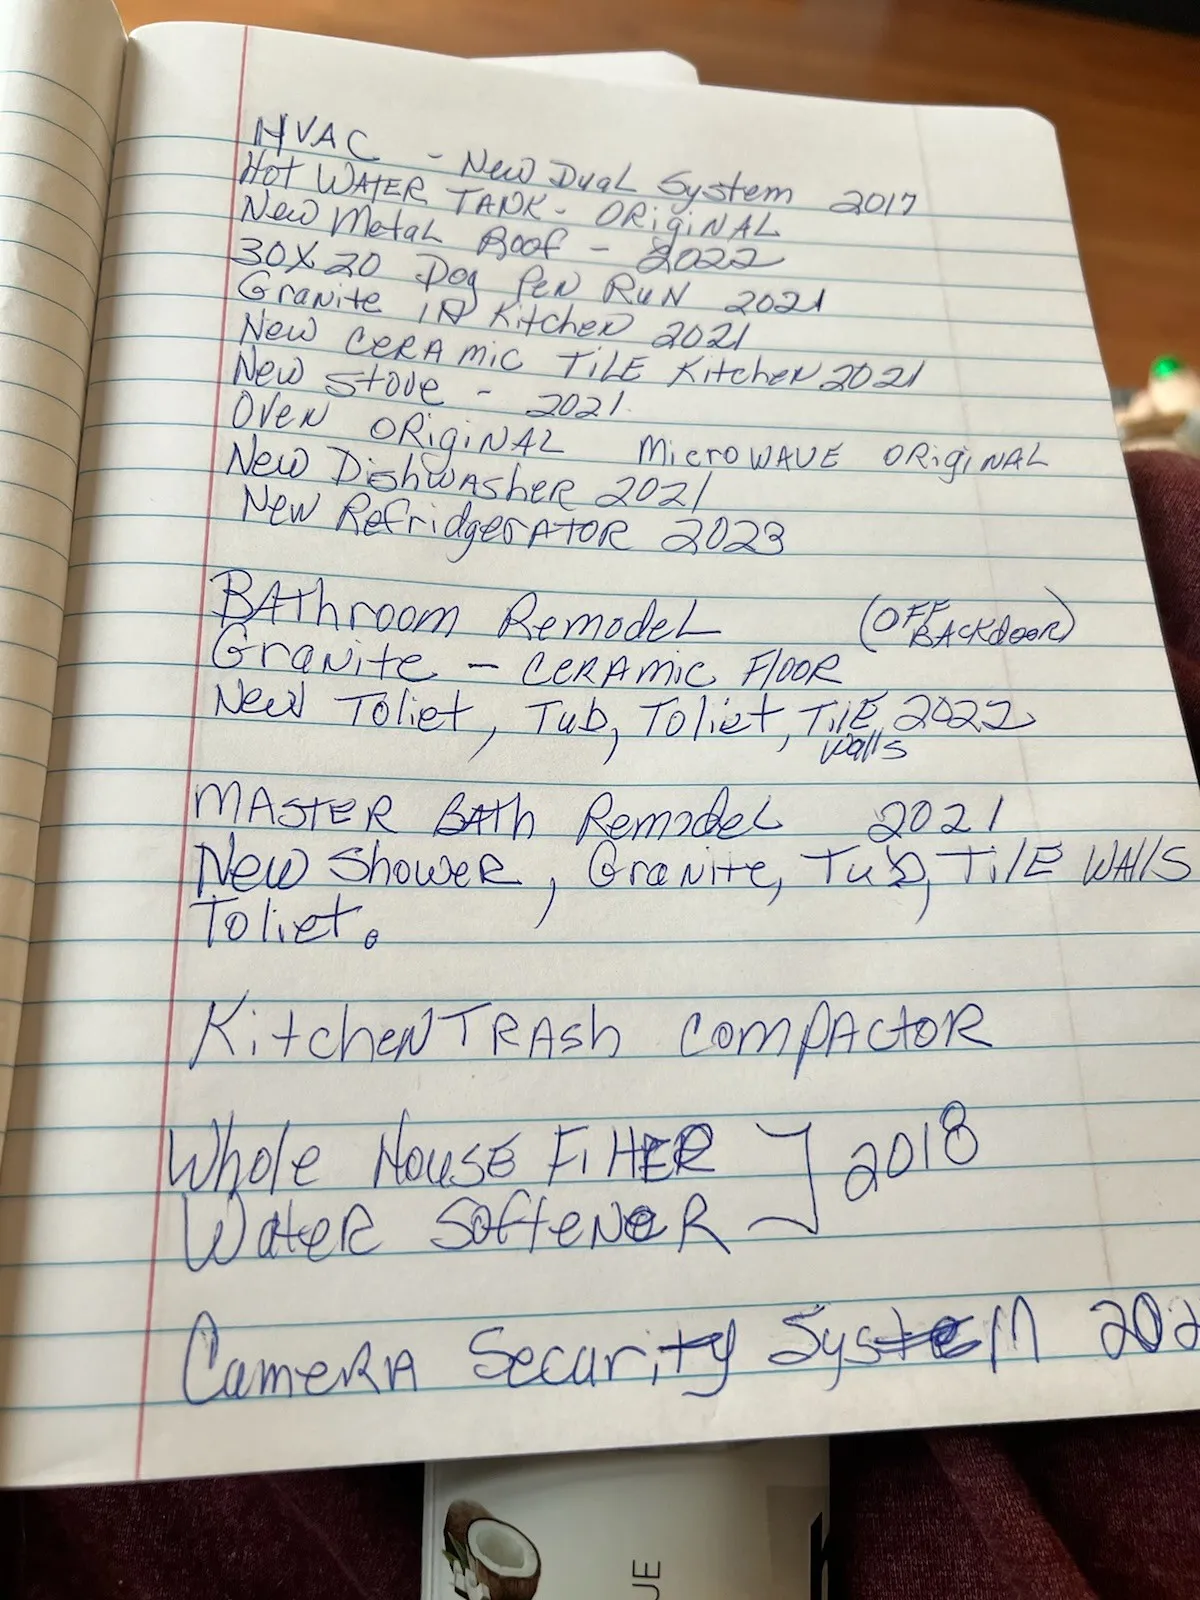 HVAC - New Dual System 2017
Hot WATER TANK - ORiginAL
New Metal Roof - 2022
30X20 Dog Pen Run 2021
Granite in Kitchen 2021
New CERAmic TiLE Kitchen 2021
New Stove - 2021.
Oven ORiginAL MicroWAVE ORiginAL
New DishwAsher 2021
New RefridgerATOR 2023
BAthroom RemodeL (OFF BACKdooR)
Granite - CERAmic FlooR
New Toliet, Tub, Toliet, TilE 2022
Walls
MASTER BAth RemodeL 2021
New ShoweR, Granite, Tub, TilE WAllS
Toliet.
Kitchen TRASh compActoR
Whole HousE FiltER
WateR SofteneR
2018
CameRA Security System 202
UE